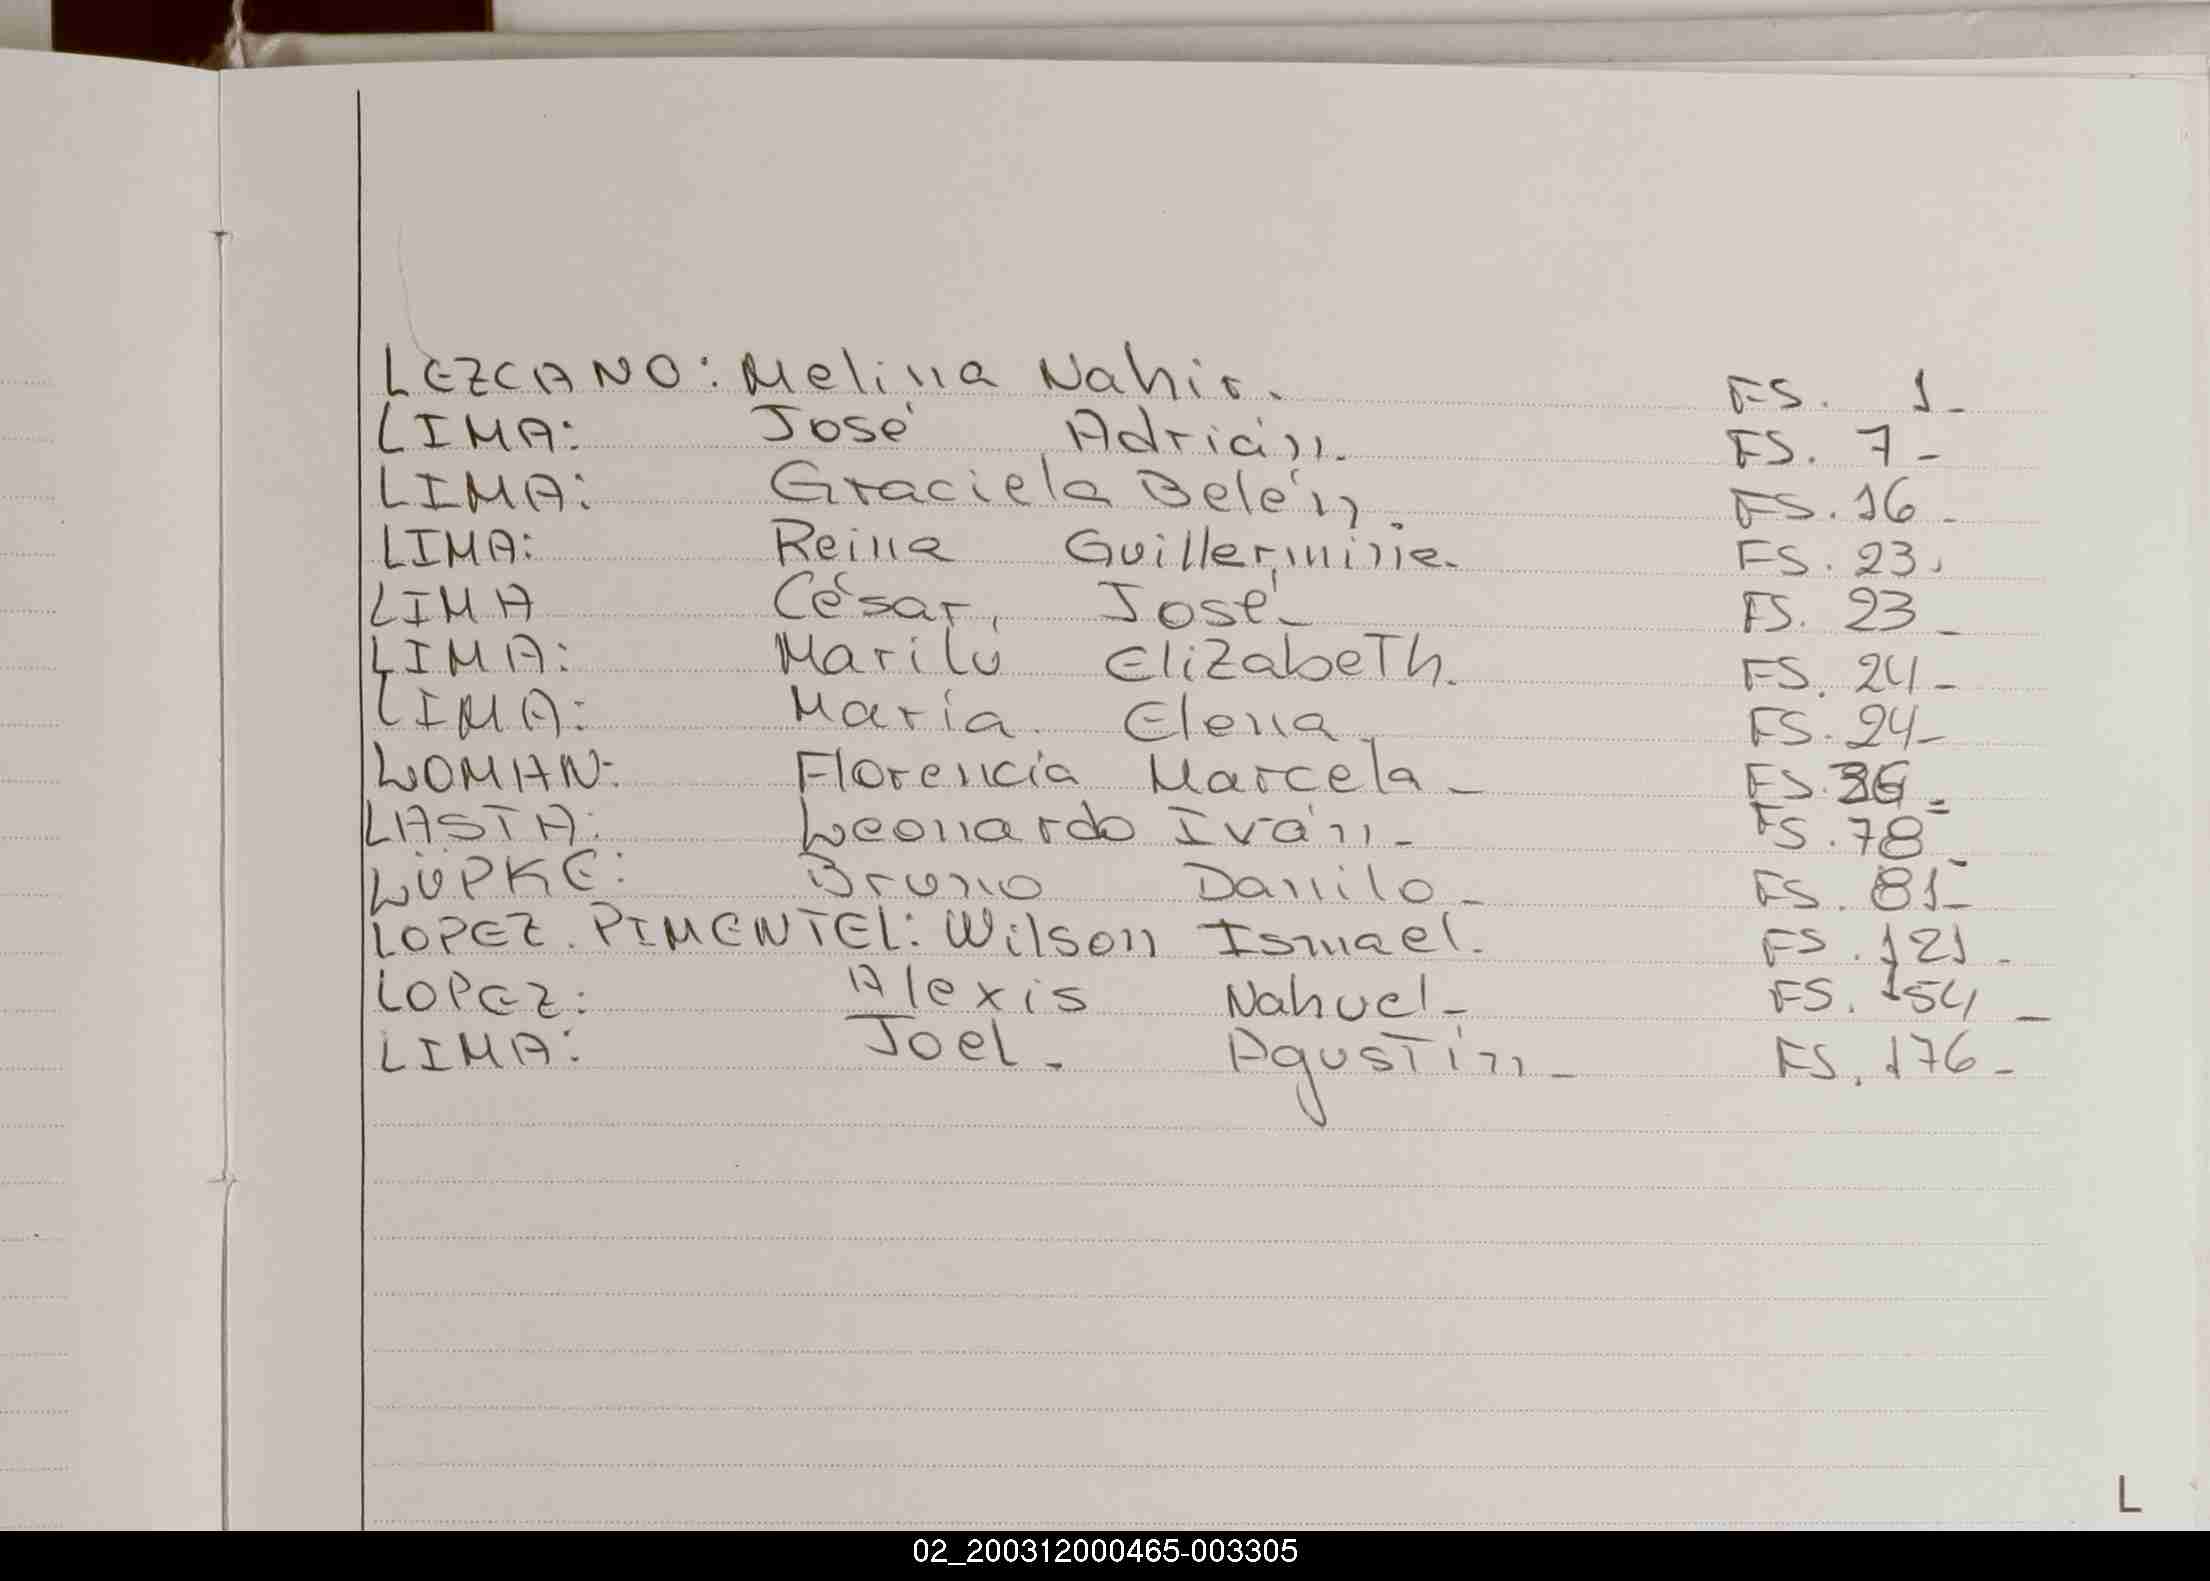 LEZCANO: Melina Nahir. FS. 1-
LIMA: José Adrián. FS. 7-
LIMA: Graciela Belén. FS. 16-
LIMA: Reina Guillermina. FS. 23.
LIMA César, José- FS. 23-
LIMA: Marilú Elizabeth. FS. 24-
LIMA: María Elena. FS. 24-
LOMAN: Florencia Marcela- FS. 36=
LASTA: Leonardo Iván- FS. 78-
LÜPKE: Bruno Danilo- FS. 81-
LOPEZ. PIMENTEL: Wilson Ismael. FS. 121-
LOPEZ: Alexis Nahuel- FS. 154-
LIMA: Joel- Agustín- FS. 176-
L
02_200312000465-003305